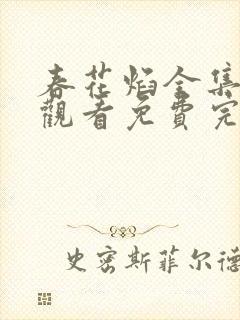 春花焰全集
觀看免費完
史密斯菲尔德